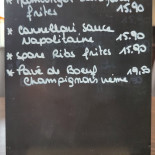 * Hamburger
frites 15.90
* Cannelloni sauce
Napolitaine 15.90
* Spare Ribs frites 15.90
* Pavé de Boeuf 19,50
Champignons crème